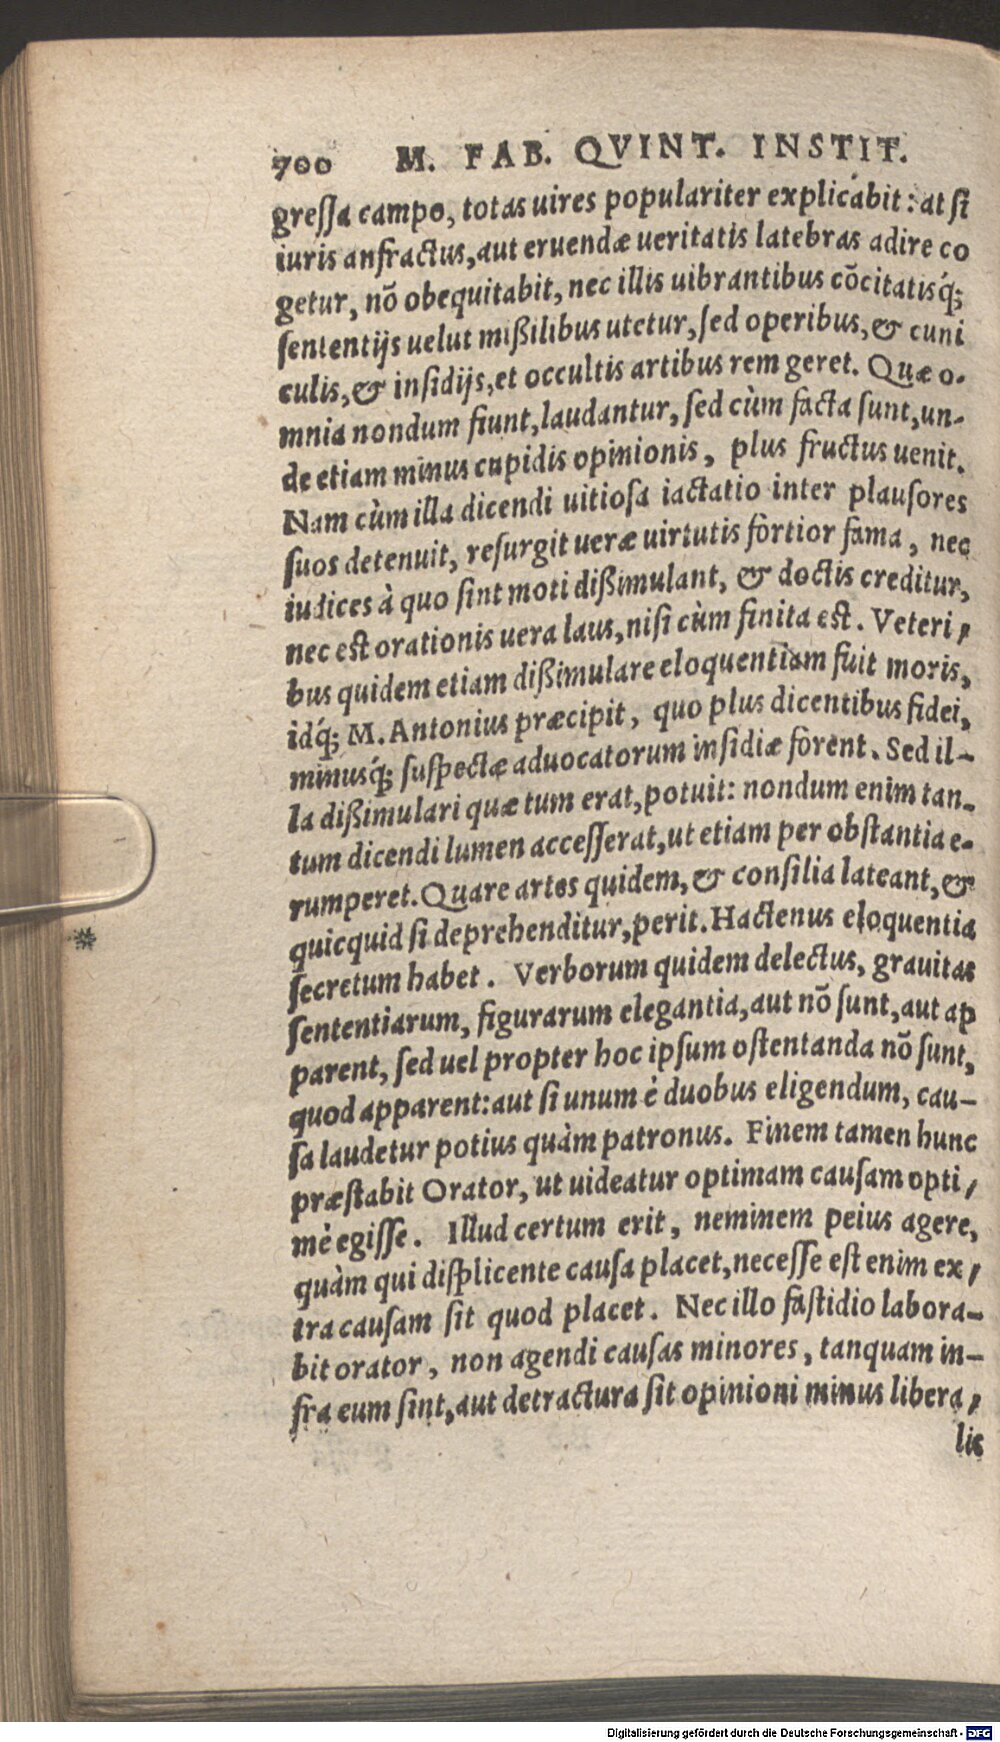 700 M. FAB. QVINT. INSTIT.
gressa campo, totas uires populariter explicabit: at si
iuris anfractus, aut eruendæ ueritatis latebras adire co
getur, nõ obequitabit, nec illis uibrantibus cõcitatisq́;
sententijs uelut mißilibus utetur, sed operibus, & cuni
culis, & insidijs, et occultis artibus rem geret. Quæ o-
mnia nondum fiunt, laudantur, sed cùm facta sunt, un-
de etiam minus cupidis opinionis, plus fructus uenit.
Nam cùm illa dicendi uitiosa iactatio inter plausores
suos detenuit, resurgit ueræ uirtutis fortior fama, nec
iudices à quo sint moti dißimulant, & doctis creditur,
nec est orationis uera laus, nisi cùm finita est. Veteri,
bus quidem etiam dißimulare eloquentiam fuit moris,
idq́; M. Antonius præcipit, quo plus dicentibus fidei,
minusq́; suspectæ aduocatorum insidiæ forent. Sed il-
la dißimulari quæ tum erat, potuit: nondum enim tan-
tum dicendi lumen accesserat, ut etiam per obstantia e-
rumperet. Quare artes quidem, & consilia lateant, &
quicquid si deprehenditur, perit. Hactenus eloquentia
secretum habet. Verborum quidem delectus, grauitas
sententiarum, figurarum elegantia, aut nõ sunt, aut ap
parent, sed uel propter hoc ipsum ostentanda nõ sunt,
quod apparent: aut si unum è duobus eligendum, cau-
sa laudetur potius quàm patronus. Finem tamen hunc
præstabit Orator, ut uideatur optimam causam opti,
mè egisse. Illud certum erit, neminem peius agere,
quàm qui displicente causa placet, necesse est enim ex,
tra causam sit quod placet. Nec illo fastidio labora-
bit orator, non agendi causas minores, tanquam in-
fra eum sint, aut detractura sit opinioni minus libera,
lis
Digitalisierung gefördert durch die Deutsche Forschungsgemeinschaft - DFG